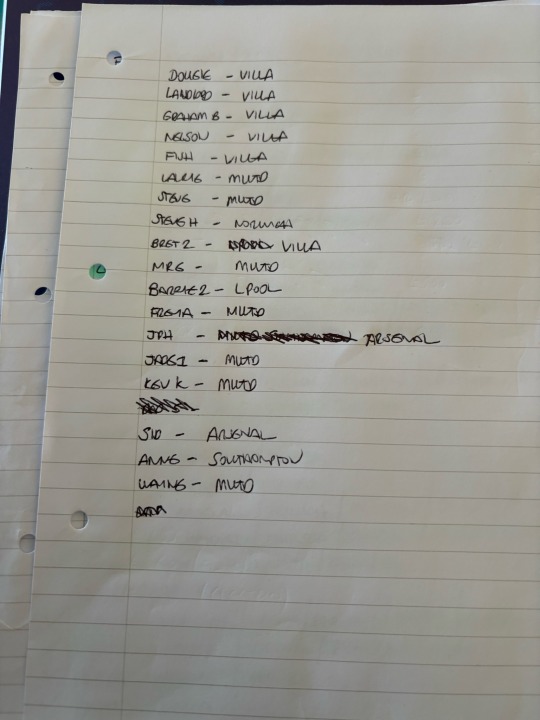 DOUGIE - VILLA
LANDLORD - VILLA
GRAHAM B - VILLA
NELSON - VILLA
FISH - VILLA
LAURIE - MUTD
STEVE - MUTD
STEVE H - NORWICH
BRET 2 - VILLA
MRG - MUTD
BARRIE 2 - LPOOL
FREYA - MUTD
JPH - ARSENAL
MUTD
KEV K - MUTD
SID - ARSENAL
ANNE - SOUTHAMPTON
WAYNE - MUTD